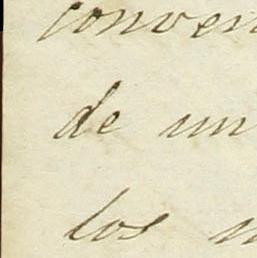 conven
de un
los